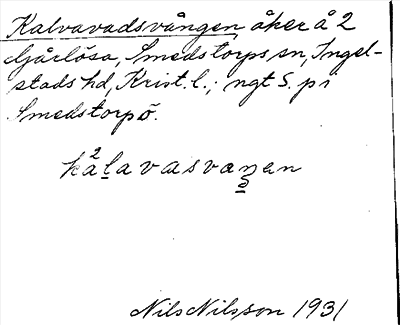 Kalvavadsvången åker å 2
Gårlösa, Smedstorps sn, Ingel-
stads hd, Krist. l.; ngt S. på
Smedstorpö.
kalavasvaŋen
Nils Nilsson 1931